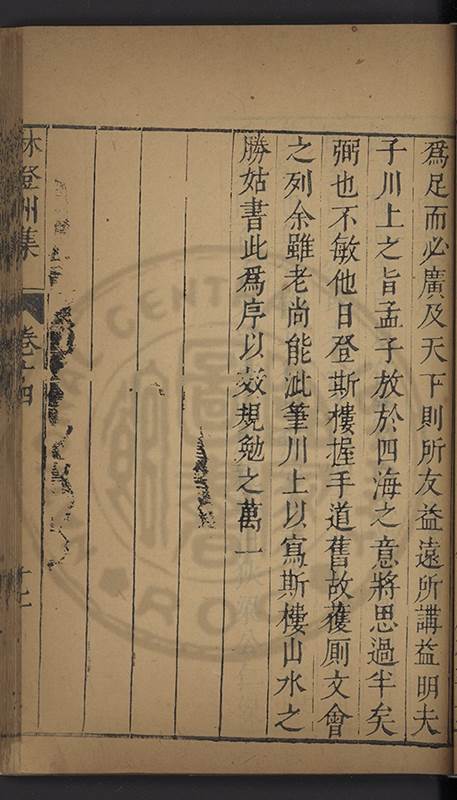 爲足而必廣及天下則所友益遠所講益明夫
子川上之旨孟子放於四海之意將思過半矣
弼也不敏他日登斯樓握手道舊故獲厠文會
之列余雖老尚能泚筆川上以寫斯樓山水之
勝姑書此爲序以效規勉之萬一
林登州集
卷十四
十七